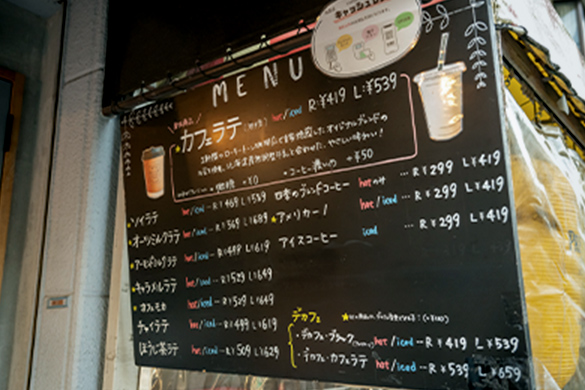 キャッシュレス
MENU
カフェラテ hot/iced R:¥419 L:¥539
+¥0
+¥50
ソイラテ hot/iced -- R¥469 L¥589
オーツミルクラテ hot/iced -- R¥569 L¥689
アーモンドミルクラテ hot/iced -- R¥499 L¥619
★キャラメルラテ hot/iced -- R¥529 L¥649
★カフェモカ hot/iced -- R¥529 L¥649
チャイラテ hot/iced -- R¥499 L¥619
ほうじ茶ラテ hot/iced -- R¥509 L¥629
ブレンドコーヒー hotのみ -- R¥299 L¥419
★アメリカーノ hot/iced -- R¥299 L¥419
アイスコーヒー iced -- R¥299 L¥419
デカフェ
・デカフェ・ブラック hot/iced -- R¥419 L¥539
・デカフェ・カフェラテ hot/iced -- R¥539 L¥659